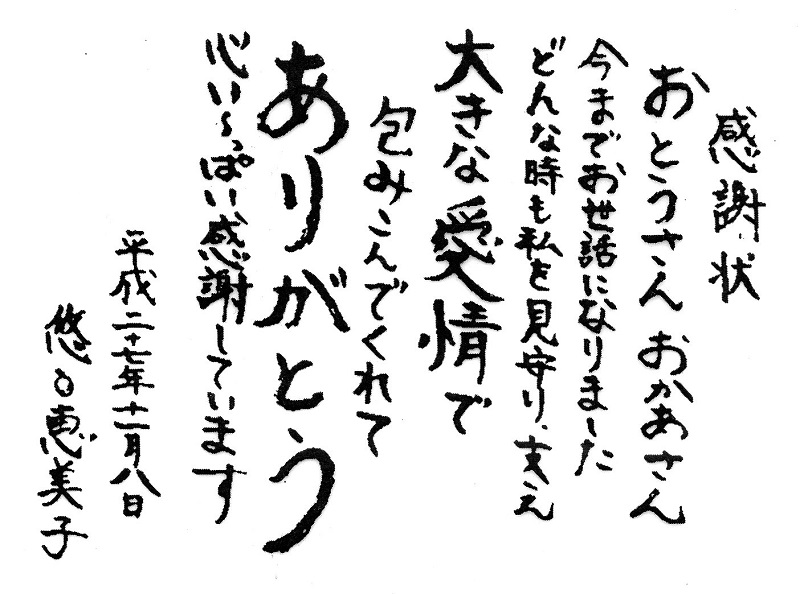 感謝状
おとうさん おかあさん
今までお世話になりました
どんな時も私を見守り、支え
大きな愛情で
包みこんでくれて
ありがとう
心い〜っぱい感謝しています
平成二十七年十一月八日
悠・恵美子